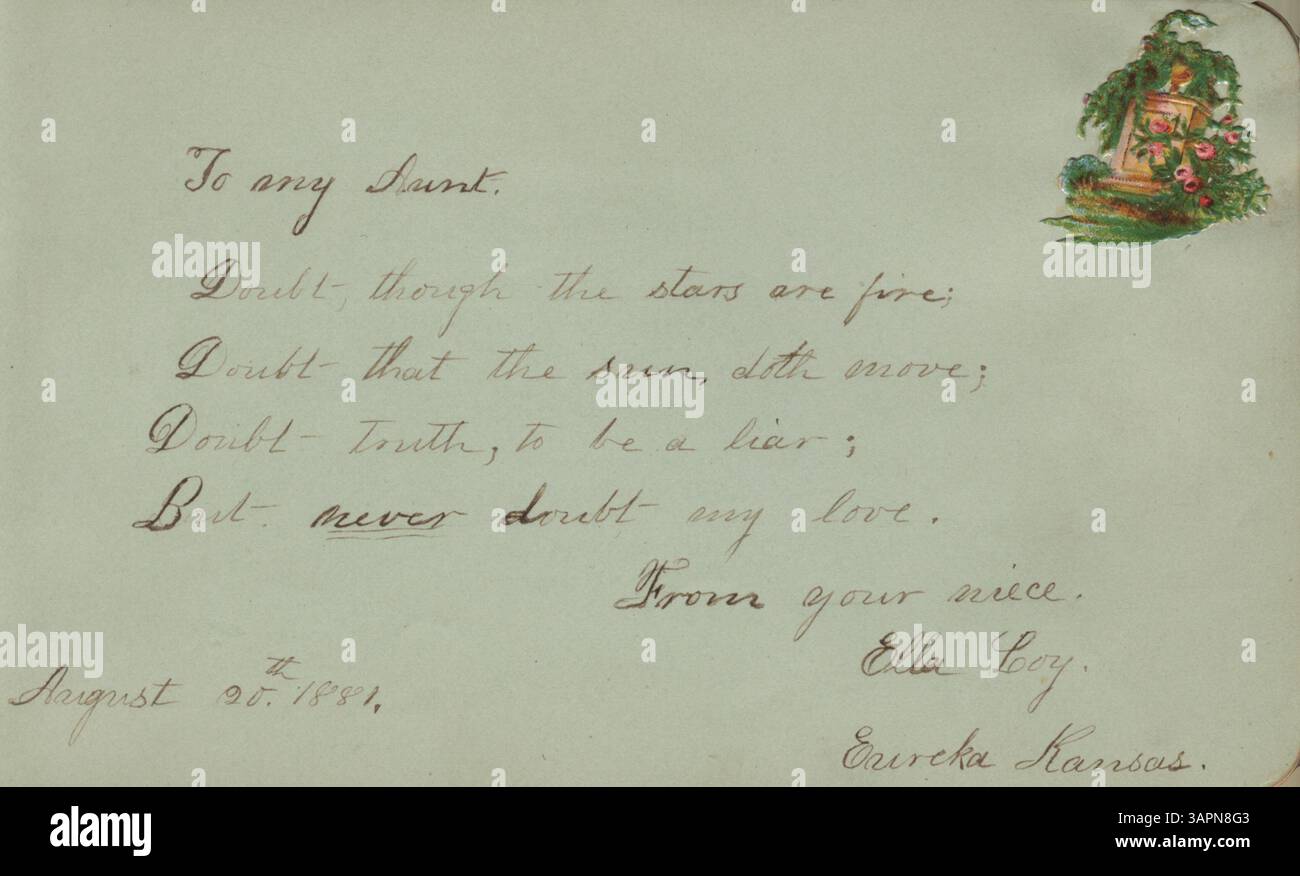 To my Aunt.
Doubt, though the stars are fire;
Doubt that the sun, doth move;
Doubt truth, to be a liar;
But never doubt my love.
From your niece.
Ella Coy.
August 20.th 1881.
Eureka Kansas.
a alamy
alamy
Image ID: 3APN8G3
www.alamy.com